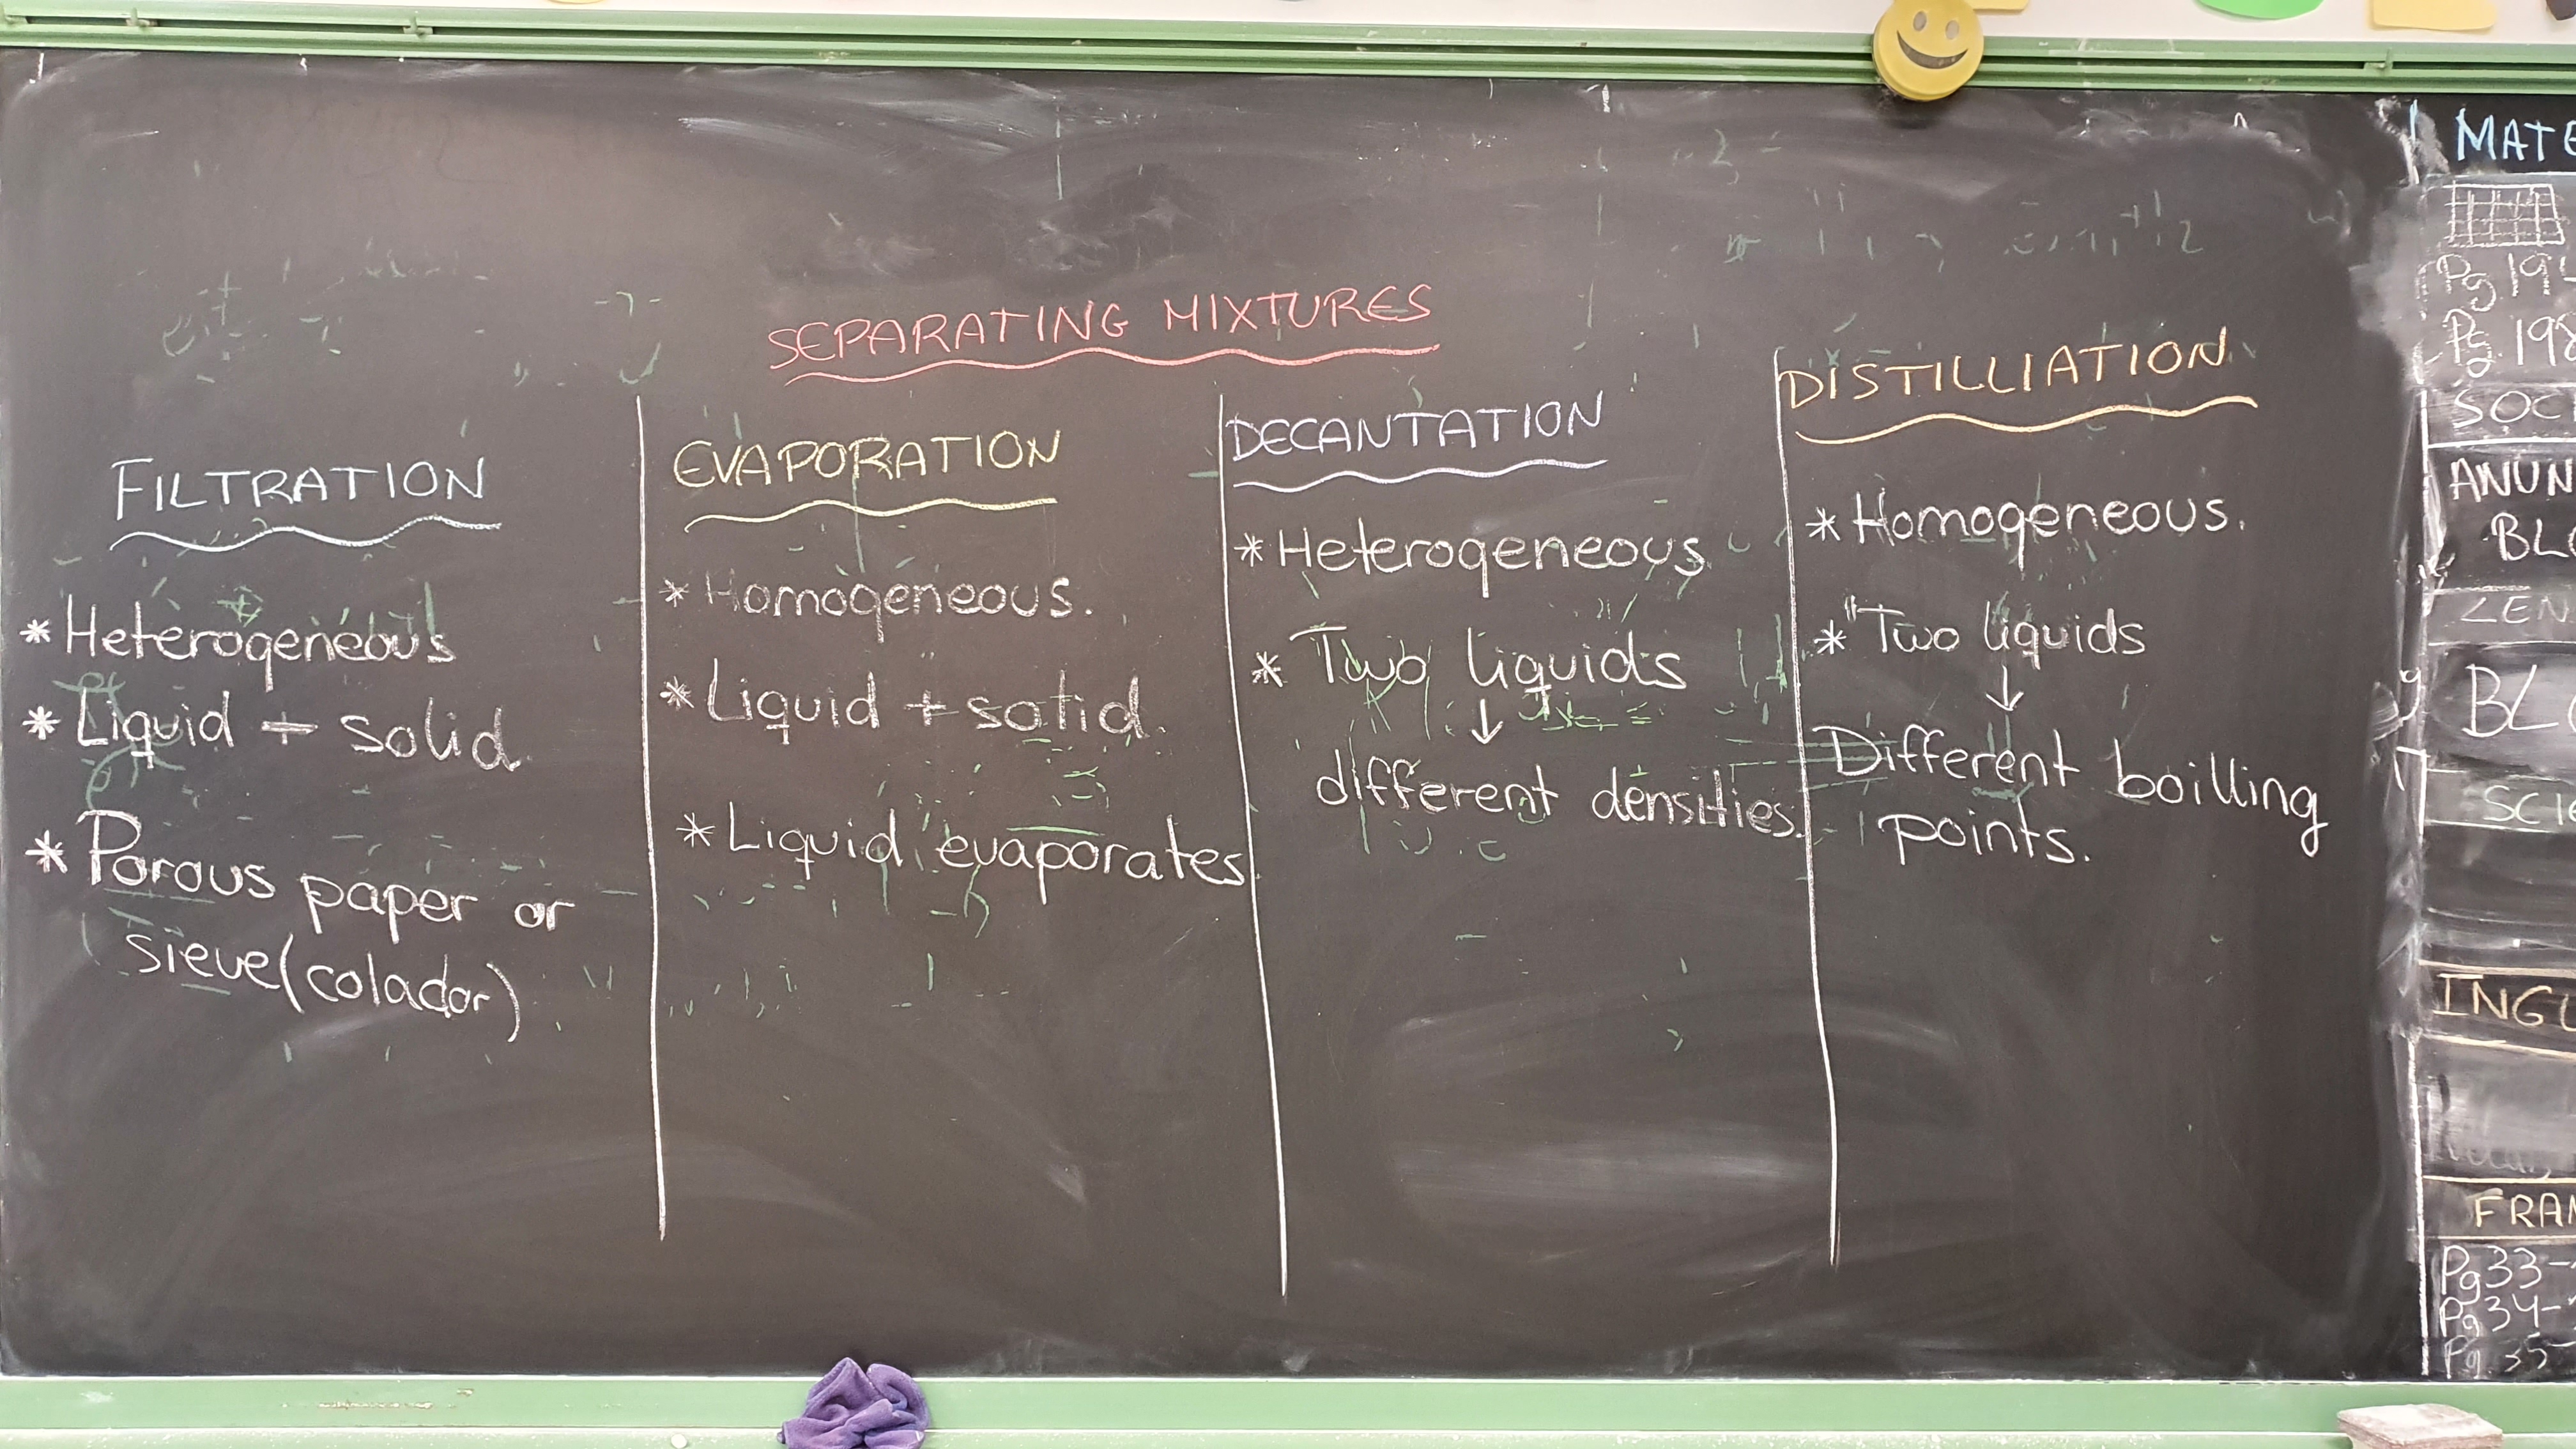 SEPARATING MIXTURES
FILTRATION
* Heterogeneous
* Liquid + solid.
* Porous paper or
sieve (colador)
EVAPORATION
* Homogeneous.
* Liquid + solid.
* Liquid evaporates
DECANTATION
* Heterogeneous
* Two liquids
↓
different densities.
DISTILLIATION
* Homogeneous.
* Two liquids
↓
Different boilling
points.
MATE
Pg 19
Pg. 198
SOC
ANUN
BLO
LEN
BLO
SCIE
INGL
FRAN
Pg 33-
Pg 34-
Pg 35-